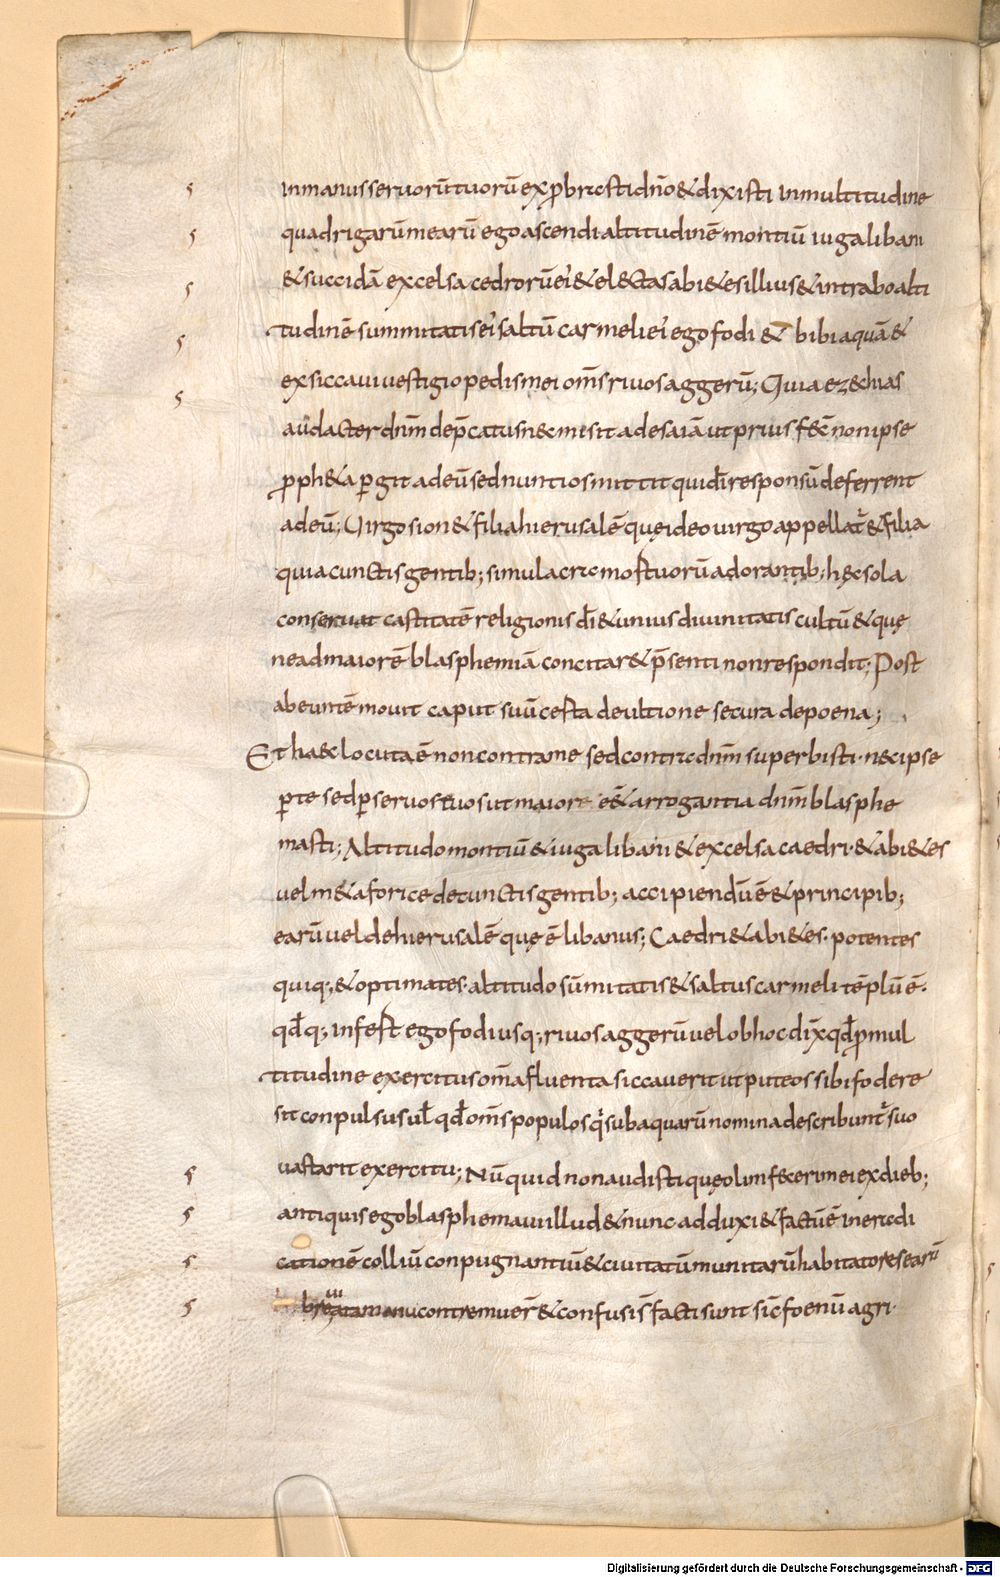 inmanusseruorūtuorū exꝓbrasti dn̄o & dixisti inmultitudine
quadrigarū mearū ego ascendi altitudinē montiū iuga libani
& succidā excelsa cedrorū ei' & el&tas abi&es illius & intrabo alti
tudinē summitatis ei' saltū carmeli ei' ego fodi & bibi aquā &
exsiccaui uestigio pedis mei om̄s riuos aggerū; Quia ezechias
audacter dn̄m dep̄catus n& misit ad esaiā ut prius fec̄ non ipse
ꝓph&a ꝑgit ad eū sed nuntios mittit qui dī responsū deferrent
ad eū; Uirgo sion & filia hierusalē quę ideo uirgo appellat̄ & filia
quia cunctis gentib; simulacra mortuorū adorantib; hęc sola
conseruat castitatē religionis dī & unius diuinitatis cultū & quę
ne ad maiorē blasphemiā concitar& p̄senti non respondit; Post
abeuntē mouit caput suū certa de ultione secura de poena;
Et haec locuta ē non contra me sed contra dn̄m superbisti· nec ipse
ꝑ te sed ꝑ seruos tuos ut maior ess& arrogantia dn̄m blasphe
masti; Altitudo montiū & iuga libani & excelsa caedri· & abi&es
uel m&aforice de cunctis gentib; accipiendū ē & principib;
earū uel de hierusalē quę ē libanus; Caedri & abi&es· potentes
quiq; & optimates· altitudo sūmitatis & saltus carmeli tēplū ē·
qd̄q; infert ego fodi usq; riuos aggerū uel ob hoc dix̄ qd̄ ꝓ mul
titudine exercitus om̄a fluenta siccauerit ut puteos sibi fodere
sit conpulsus ul̄ qd̄ om̄s populos q̄ sub aquarū nomina describunt̄ suo
uastarit exercitu; Nūquid non audisti quę olim fecerim ei ex dieb;
antiquis ego blasphemaui illud & nunc adduxi & factū ē in eradi
cationē colliū conpugnantiū & ciuitatū munitarū habitatores earū
breuiata manu contremuer̄ & confusi s̄ facti sunt sic̄ foenū agri·
Digitalisierung gefördert durch die Deutsche Forschungsgemeinschaft - DFG